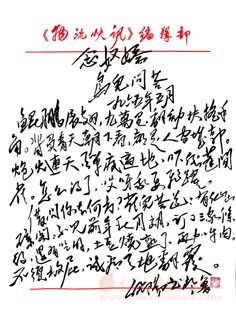 《物流快讯》编辑部
念奴娇
鸟儿问答
一九六五年五月
鲲鹏展翅，九万里，翻动扶摇羊
角。背负青天朝下看，都是人间城郭。
炮火连天，弹痕遍地，吓倒蓬间
雀。怎么得了，哎呀我要飞跃。
借问你去何方，雀儿答道：有仙山
琼阁。不见前年秋月朗，订了三家条
约。还有吃的，土豆烧熟了，再加牛肉。
不须放屁，试看天地翻覆。